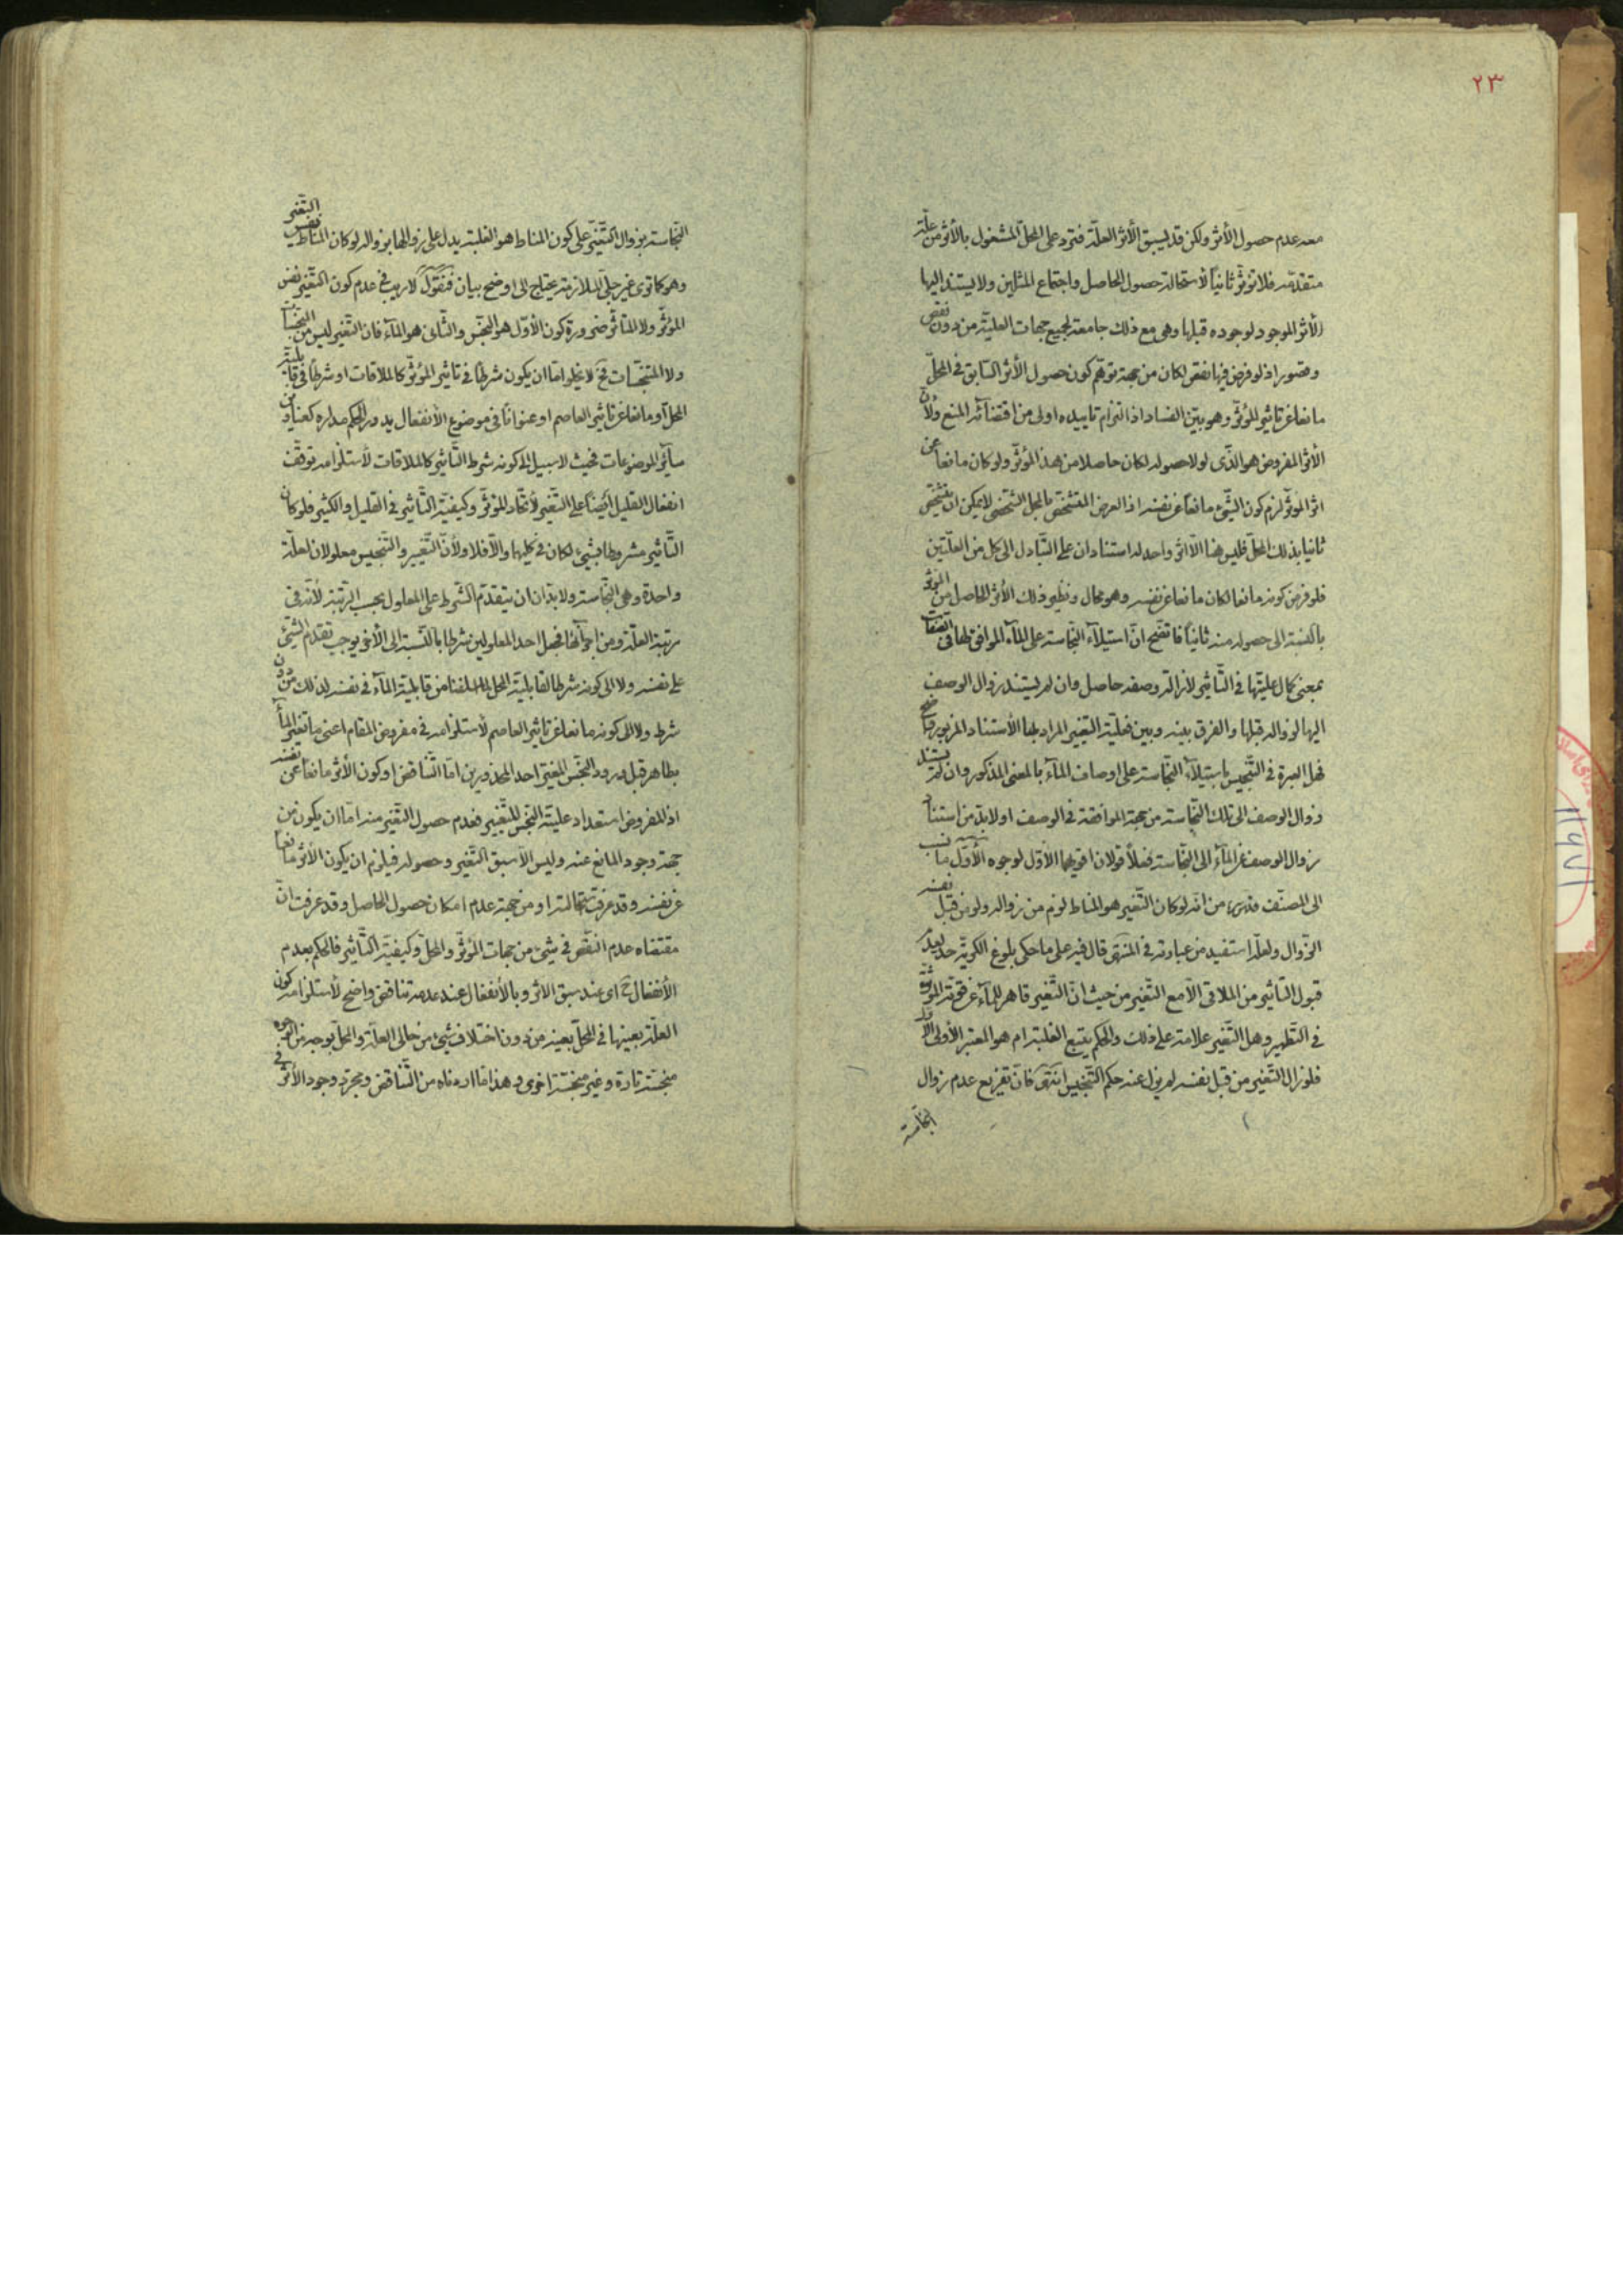 ٢٣
معه عدم حصول الأثر ولكن قد يسبق الأثر العلّة فترد على المحلّ المشغول بالأثر من علّة
متقدّمة فلا تؤثّر ثانياً لأستحالة حصول الحاصل واجتماع المثلين ولا يستند اليها
الأثر الموجود لوجوده قبلها وهى مع ذلك جامعة لجميع جهات العليّة من دون نقص
وقصور اذ لو فرض فيها نقص لكان من جهة توهّم كون حصول الأثر السّابق فى المحلّ
مانعا عن تاثير المؤثّر وهو بيّن الفساد اذ التزام تاييده اولى من اقتضائه المنع ولأنّ
الأثر المفروض هو الّذى لولا حصوله لكان حاصلا من هذا المؤثّر ولو كان مانعاً عن
اثر المؤثّر لزم كون الشّىء مانعاً عن نفسه اذ العرض المتشخّص بالمحل الشّخصى لا يمكن ان يتشخّص
ثانيا بذلك المحلّ فليس هنا الّا اثر واحد له استنادان على التّبادل الى كل من العلّتين
فلو فرض كونه مانعا لكان مانعا عن نفسه وهو محال ونظير ذلك الأثر الحاصل من المؤثّر
بالنّسبة الى حصوله منه ثانياً فاتّضح انّ استيلاء النّجاسة على الماء الموافق لها فى الصّفات
بمعنى كمال عليّتها فى التّاثير لأزالة وصفه حاصل وان لم يستند زوال الوصف
اليها لزواله قبلها والفرق بينه وبين فعليّة التّغيير المراد بها الأستناد المزبور واضح
فهل العبرة فى التّنجيس باستيلاء النّجاسة على اوصاف الماء بالمعنى المذكور وان لم يستند
زوال الوصف الى تلك النّجاسة من جهة الموافقة فى الوصف او لا بدّ من استناد
زوال الوصف عن الماء الى النّجاسة فعلاً قولان اقويهما الأوّل لوجوه الأوّل ما نسب
الى المصنّف قدّس سرّه من انّه لو كان التّغير هو المناط لزم من زواله ولو من قبل نفسه
الزّوال ولعلّه استفيد من عبارته فى المنتهى قال فيه على ما حكى بلوغ الكريّة حدّ لعدم
قبول التّاثير من الملاقى الّا مع التّغير من حيث انّ التّغير قاهر للماء عن قوّته المؤثّرة
فى التّطهير وهل التّغير علامة على ذلك والحكم يتبع الغلبة ام هو المعتبر الأولى الأوّل
فلو زال التّغير من قبل نفسه لم يزل عنه حكم التّنجيس انتهى فانّ تفريع عدم زوال
النّجاسة
النّجاسة بزوال التّغيّر على كون المناط هو الغلبة يدل على زوالها بزواله لو كان المناط نفس التّغيّر
وهو كما ترى غير جلىّ الملازمة يحتاج الى اوضح بيان فنقول لا ريب فى عدم كون التّغير نفس
المؤثّر ولا المتأثّر ضرورة كون الأوّل هو النّجس والثّانى هو الماء فان التّغير ليس من النّجاسات
ولا المتنجّسات فح لا يخلو امّا ان يكون شرطاً فى تاثير المؤثّر كالملاقات او شرطاً فى قابليّة
المحلّ او مانعا عن تاثير العاصم او عنوانًا فى موضوع الأنفعال يدور الحكم مداره كعناوين
سائر الموضوعات فحيث لا سبيل الى كونه شرط التّاثير كالملاقات لأستلزامه توقّف
انفعال القليل ايضاً على التّغير لأتّحاد المؤثّر وكيفيّة التّاثير فى القليل والكثير فلو كان
التّاثير مشروطا بشىء لكان فى كليهما والّا فلا ولأنّ التّغيير والتّنجيس معلولان لعلّة
واحدة وهى النّجاسة ولا بدّ ان ان يتقدّم الشّرط على المعلول بحسب الرّتبة لأنّه فى
مرتبة العلّة ومن اجزائها فجعل احد المعلولين شرطا بالنّسبة الى الأخر يوجب تقدّم الشّىء
على نفسه ولا الى كونه شرطا لقابليّة المحل لما اسلفنا من قابليّة الماء فى نفسه لذلك من دون
شرط ولا الى كونه مانعا عن تاثير العاصم لأستلزامه فى مفروض المقام اعنى ما تغيّر الماء
بطاهر قبل ورود النّجس المغيّر احد المحذورين امّا التّناقض او كون الأثر مانعاً عن نفسه
اذ المفروض استعداد عليّة النّجس للتّغيير فعدم حصول التّغير منه امّا ان يكون من
جهة وجود المانع عنه وليس الّا سبق التّغير وحصوله فيلزم ان يكون الأثر مانعا
عن نفسه وقد عرفت استحالته او من جهة عدم امكان حصول الحاصل وقد عرفت انّ
مقتضاه عدم النّقص فى شىء من جهات المؤثّر والمحلّ وكيفيّة التّاثير فالحكم بعدم
الأنفعال ح اى عند سبق الاثر وبالأنفعال عند عدمه تناقض واضح لأستلزامه كون
العلّة بعينها فى المحلّ بعينه من دون اختلاف شىء من حالى العلّة والمحلّ بوجه من الوجوه
منجّسة تارة وغير منجّسة اخرى وهذا ما اردناه من التّناقض ومجرّد وجود الأثر فى